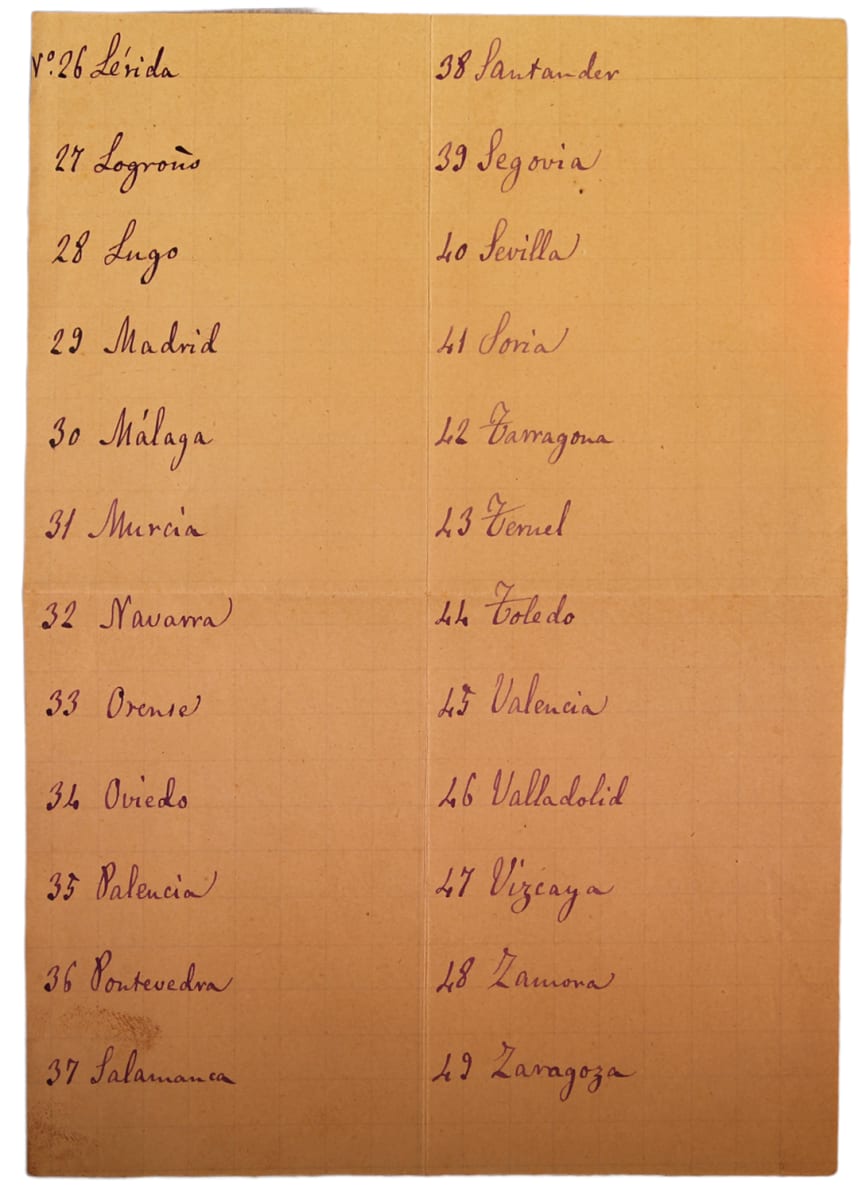 Nº. 26 Lérida
27 Logroño
28 Lugo
29 Madrid
30 Málaga
31 Murcia
32 Navarra
33 Orense
34 Oviedo
35 Palencia
36 Pontevedra
37 Salamanca
38 Santander
39 Segovia
40 Sevilla
41 Soria
42 Tarragona
43 Teruel
44 Toledo
45 Valencia
46 Valladolid
47 Vizcaya
48 Zamora
49 Zaragoza